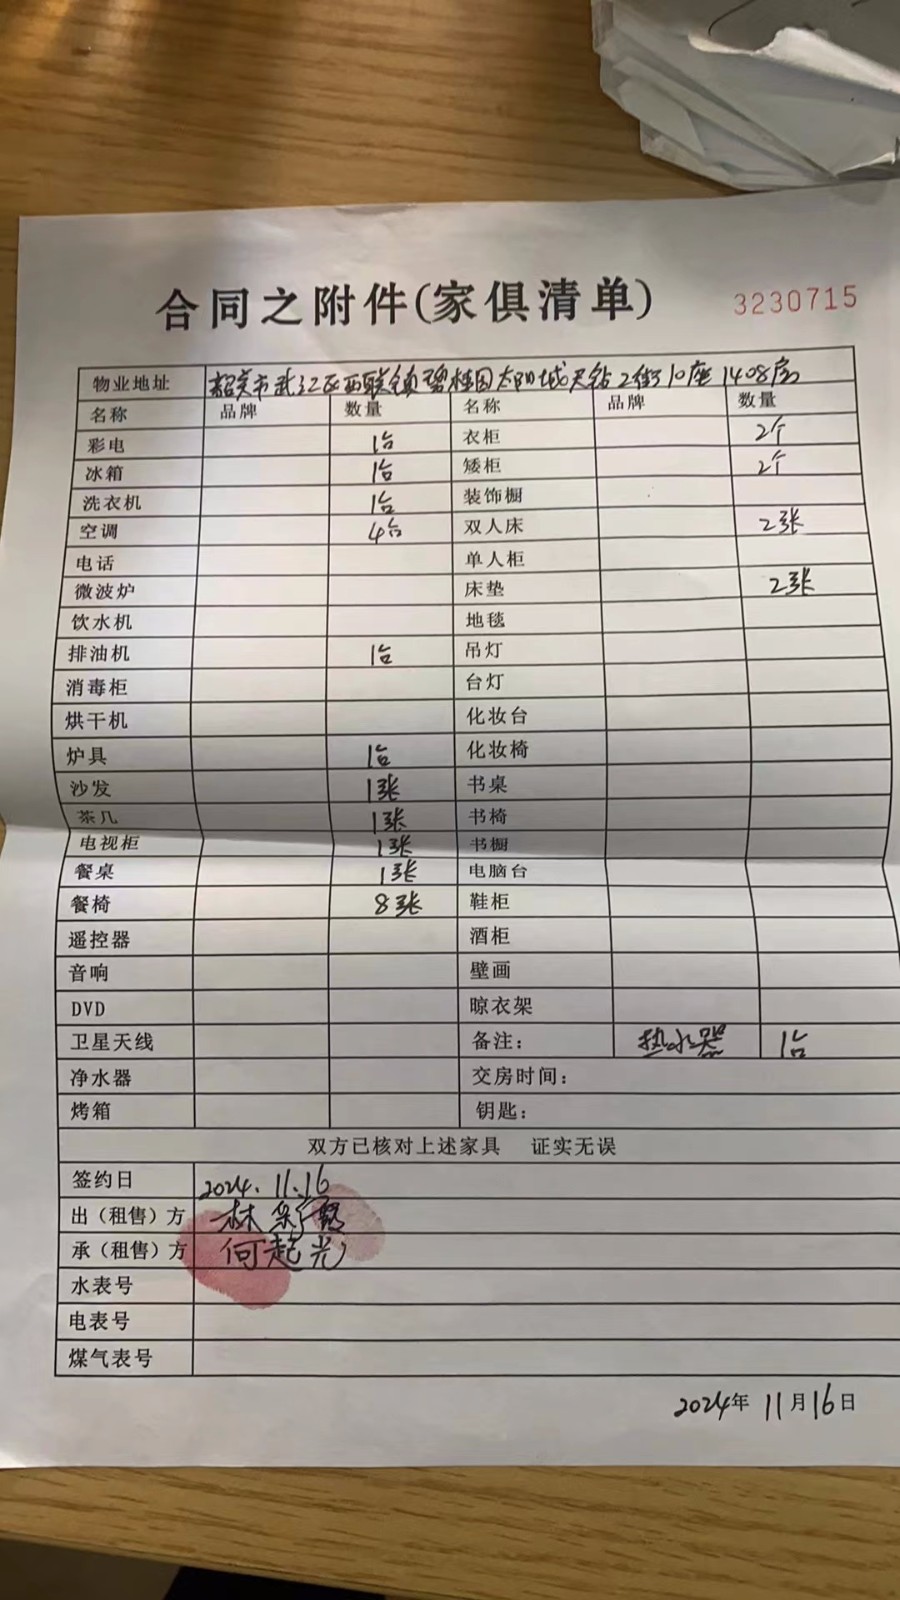 合同之附件(家俱清单) 3230715
物业地址 韶关市武江区西联镇碧桂园太阳城天钻2街10座1408房
名称 品牌 数量 名称 品牌 数量
彩电 1台 衣柜 2个
冰箱 1台 矮柜 2个
洗衣机 1台 装饰橱
空调 4台 双人床 2张
电话 单人柜
微波炉 床垫 2张
饮水机 地毯
排油机 1台 吊灯
消毒柜 台灯
烘干机 化妆台
炉具 1台 化妆椅
沙发 1张 书桌
茶几 1张 书椅
电视柜 1张 书橱
餐桌 1张 电脑台
餐椅 8张 鞋柜
遥控器 酒柜
音响 壁画
DVD 晾衣架
卫星天线 备注: 热水器 1台
净水器 交房时间:
烤箱 钥匙:
双方已核对上述家具 证实无误
签约日 2024.11.16
出(租售)方 林
承(租售)方 何起光
水表号
电表号
煤气表号
2024年11月16日